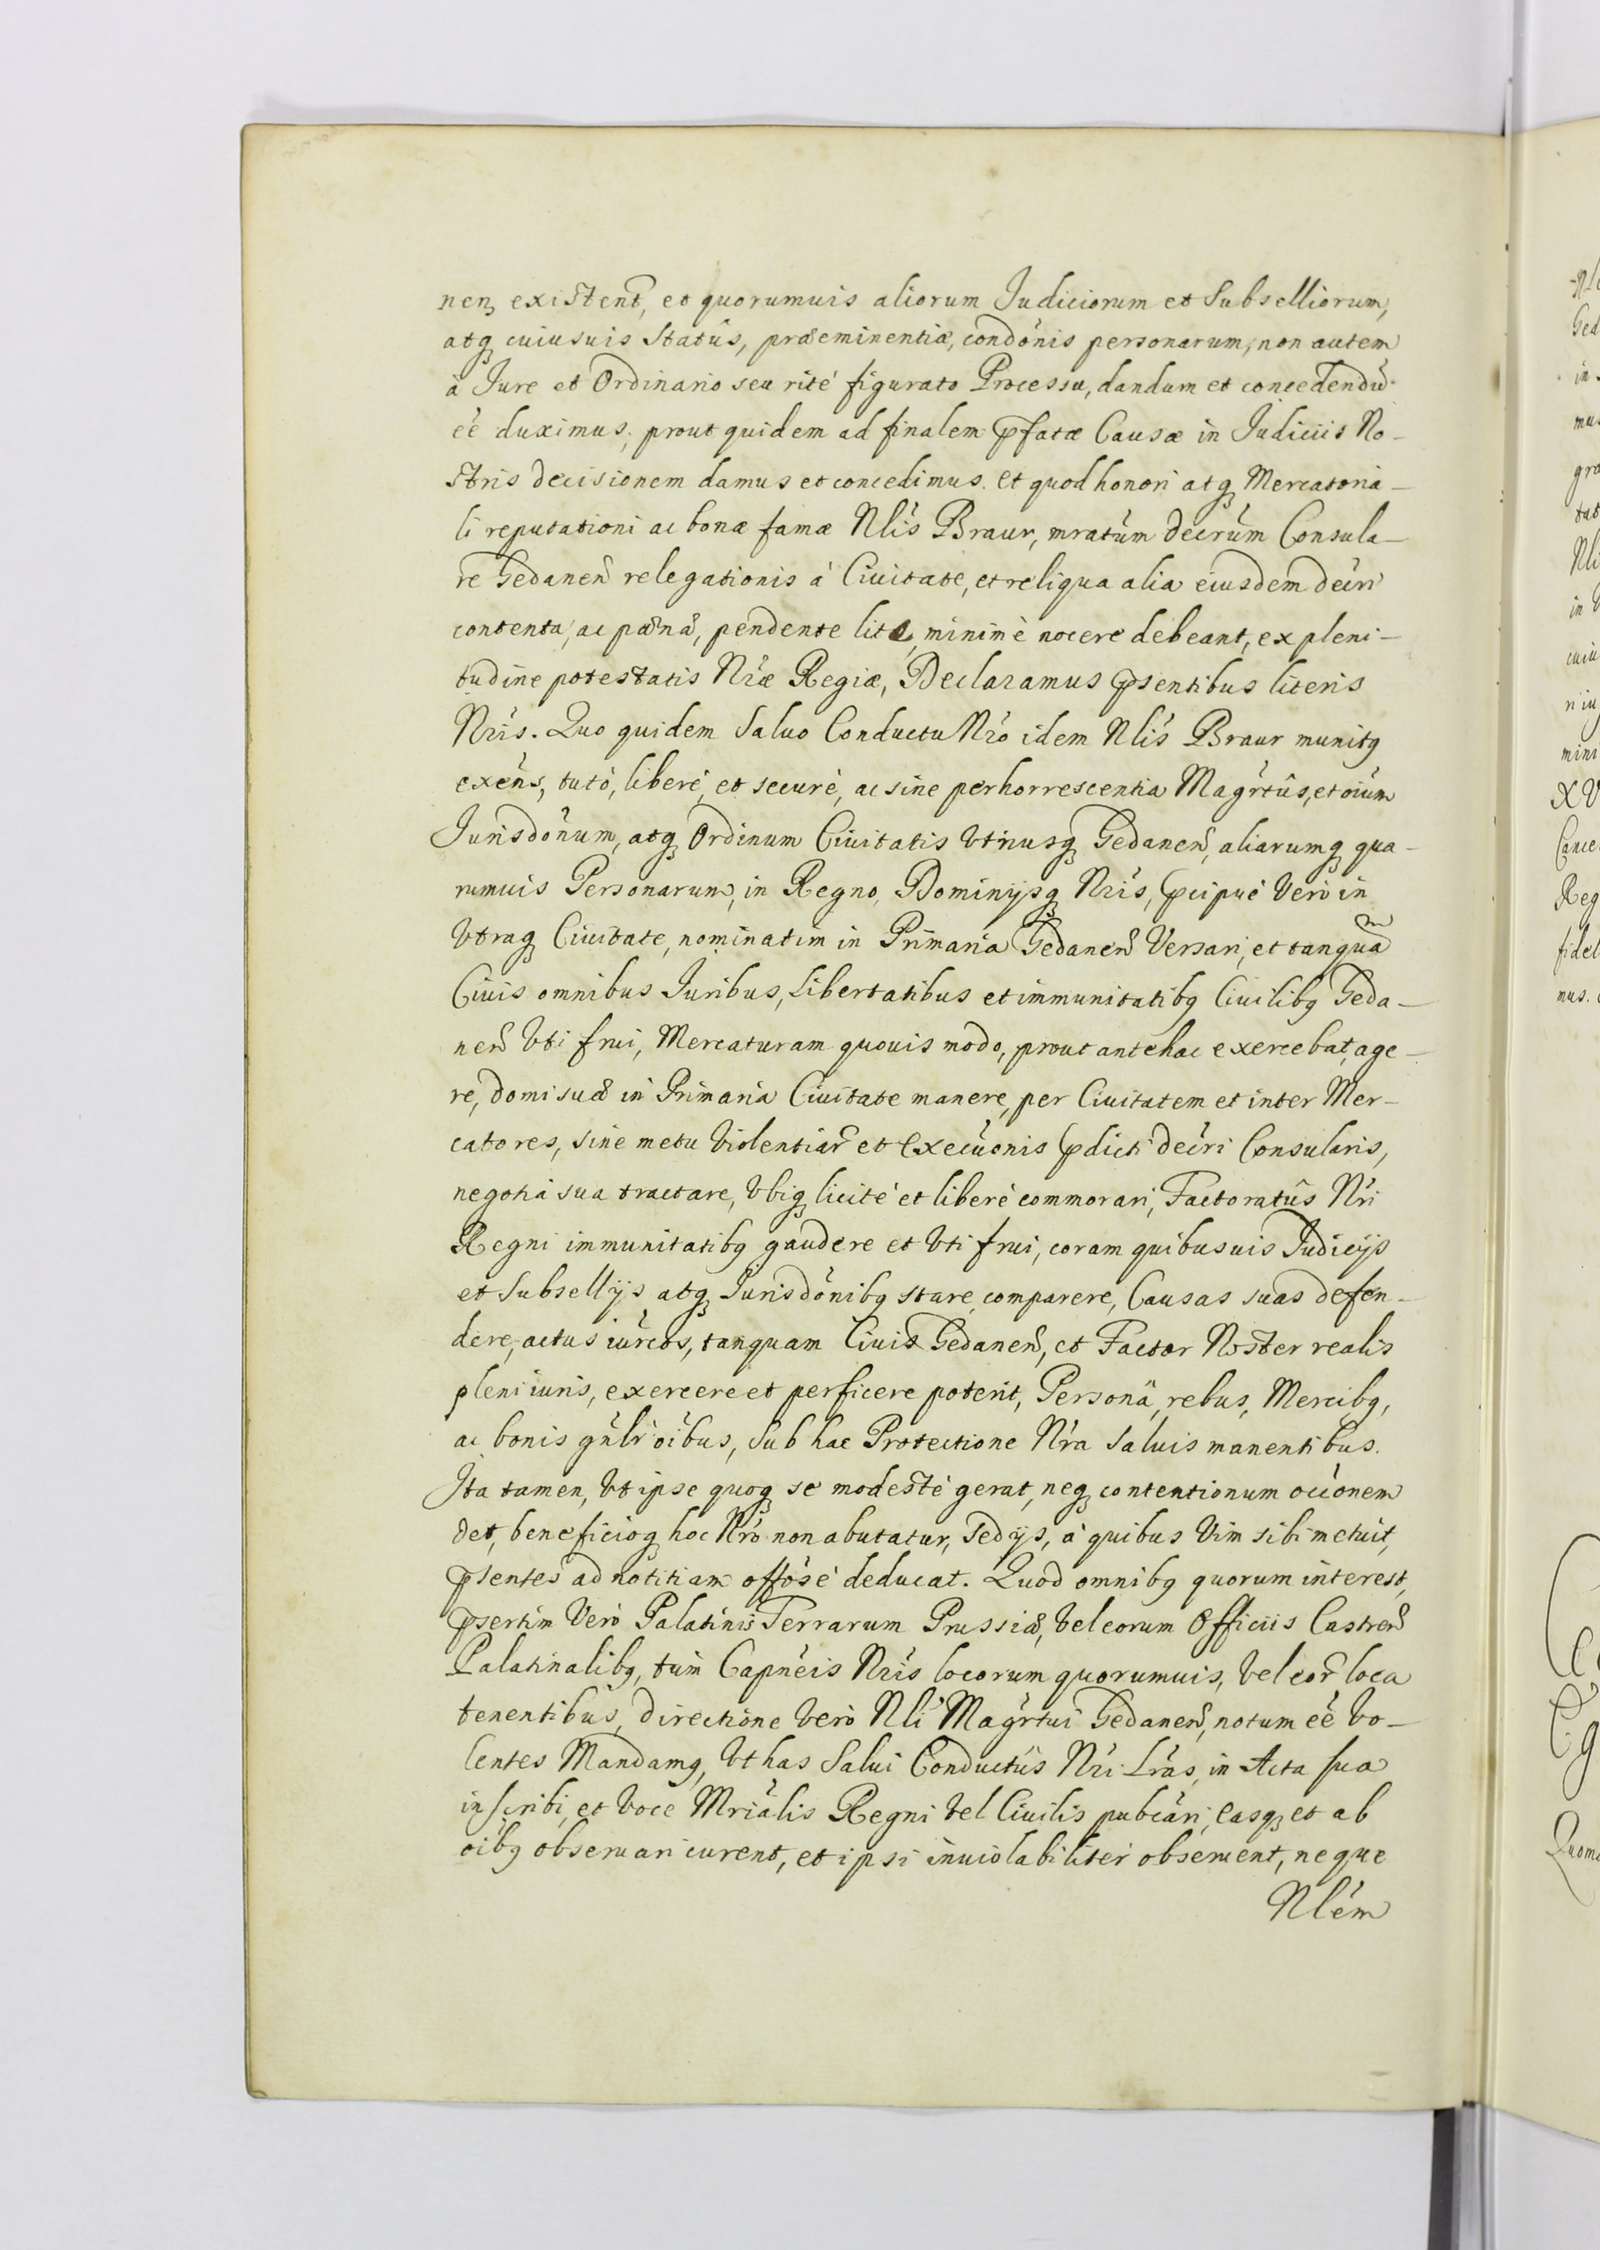 nen̄ existent̄, et quorumuis aliorum Iudiciorum et Subselliorum,
atq̨ cuiusuis Statûs, præeminentiæ, condōnis personarum, non autem
à Iure et Ordinario seu ritè figurato Processu, dandum et concedendū
eē duximus, prout quidem ad finalem p̄fatæ Causæ in Iudiciis No-
stris decisionem damus et concedimus. et quod honori atq̨ Mercatoria-
li reputationi ac bonæ famæ Nlīs Braur, mratūm decrūm Consula-
re Gedanen̄ relegationis à Ciuitate, et reliqua alia eiusdem decr̄i
contenta, ac pœnæ, pendente lite, minimè nocere debeant, ex pleni-
tudine potestatis Nr̄æ Regiæ, Declaramus p̄sentibus literis
Nr̄is. Quo quidem Saluo Conductu Nr̄o idem Nlīs Braur munitq̨
exēns, tutò, liberè, et securè, ac sine perhorrescentia Magrtûs, et oīum
Iurisdōnum, atq̨ Ordinum Ciuitatis Vtriusq̨ Gedanen̄, aliarumq̨ qua-
rumuis Personarum, in Regno, Dominijsq̨ Nr̄is, p̄cipuè Verò in
Vtraq̨ Ciuitate, nominatim in Primaria Gedanen̄ Versari, et tanquā
Ciuis omnibus Iuribus, Libertatibus et immunitatibq̨ Ciuilibq̨ Geda-
nen̄ Vti frui, Mercaturam quouis modo, prout antehac exercebat, age-
re, domi suæ in Primaria Ciuitate manere, per Ciuitatem et inter Mer-
catores, sine metu Violentiar̄ et Execūonis p̄dicti decr̄i Consularis,
negotia sua tractare, Vbiq̨ licitè et liberè commorari, Factoratûs Nr̄i
Regni immunitatibq̨ gaudere et Vti frui, coram quibusuis Iudicijs
et Subsellijs atq̨ Iurisdōnibq̨ stare, comparere, Causas suas defen-
dere, actus iūrcos, tanquam Ciuis Gedanen̄, et Factor Noster realis
pleni iuris, exercere et perficere poterit, Personâ, rebus, Mercibq̨,
ac bonis gn̄lr oībus, Sub hac Protectione Nr̄a Saluis manentibus.
Ita tamen, Vt ipse quoq̨ se modestè gerat, neq̨ contentionum occōnem
det, beneficioq̨ hoc Nr̄o non abutatur, Sed ijs, à quibus Vim sibi metuit,
p̄sentes ad notitiam offōsè deducat. Quod omnibq̨ quorum interest,
p̄sertim Verò Palatinis Terrarum Prussiæ, Vel eorum Officiis Castren̄
Palatinalibq̨, tùm Capnēis Nr̄is locorum quorumuis, Vel eor̄ loca
tenentibus, directione Verò Nlī Magrtui Gedanen̄, notum eē Vo-
lentes Mandamq̨, Vt has Salui Conductûs Nr̄i Lr̄as, in Acta sua
inscribi, et Voce Mriālis Regni Vel Ciuilis pubcāri, easq̨ et ab
oībq̨ obseruari curent, et ipsi inuiolabiliter obseruent, neque
Nlēm